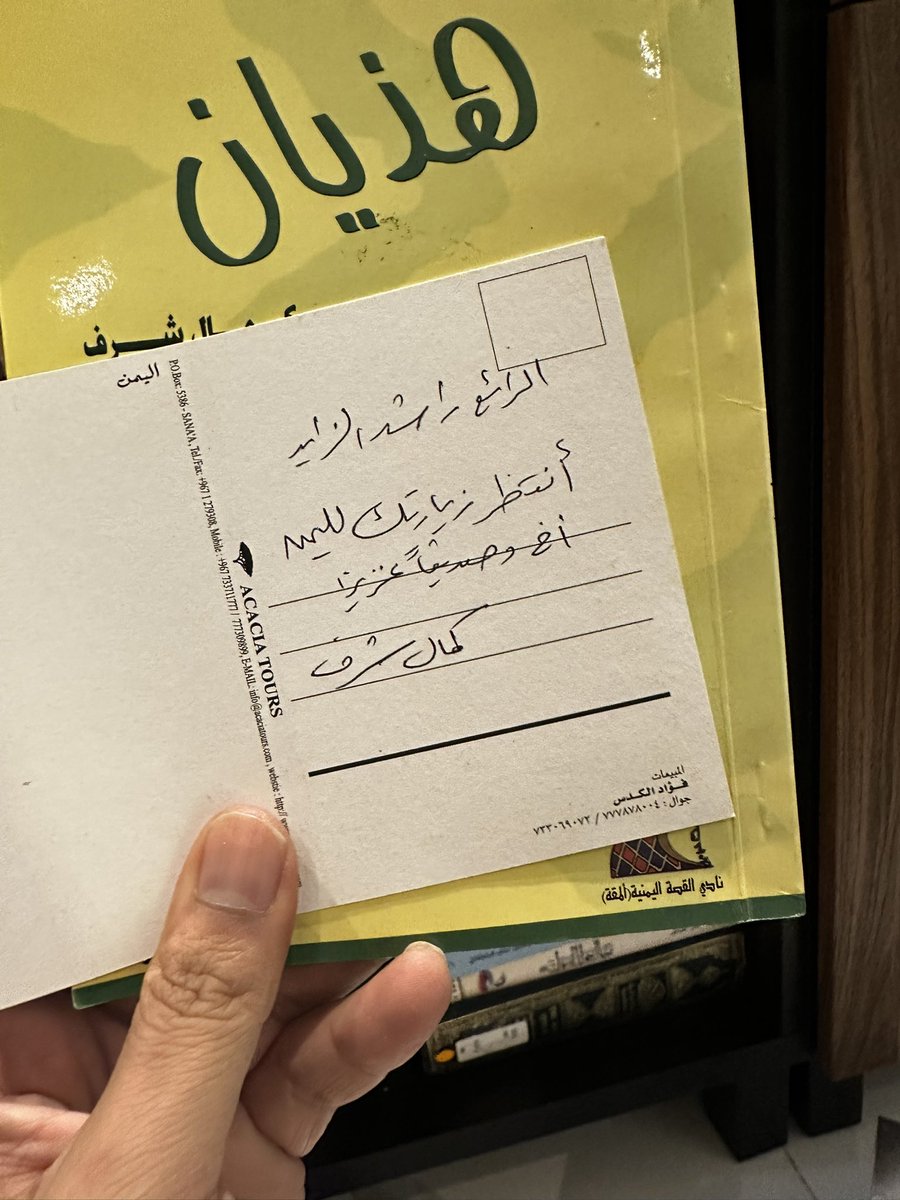 هذيان
شرف
اليمن
P.O.Box: 5386 - SANA'A, Tel./Fax: +967 1 279308, Mobile : +967 733711777 / 777309899, E-MAIL: info@acaciatours.com , webstie : http://
ACACIA TOURS
الرائع راشد الزايد
أنتظر زيارتك لليمن
أخ وصديقاً عزيزا
كمال شرف
المبيعات
فؤاد الكدس
جوال : ٧٧٧٨٧٨٠٠٤ / ٧٣٣٠٦٩٠٧٢
نادي القصة اليمنية (المقة)